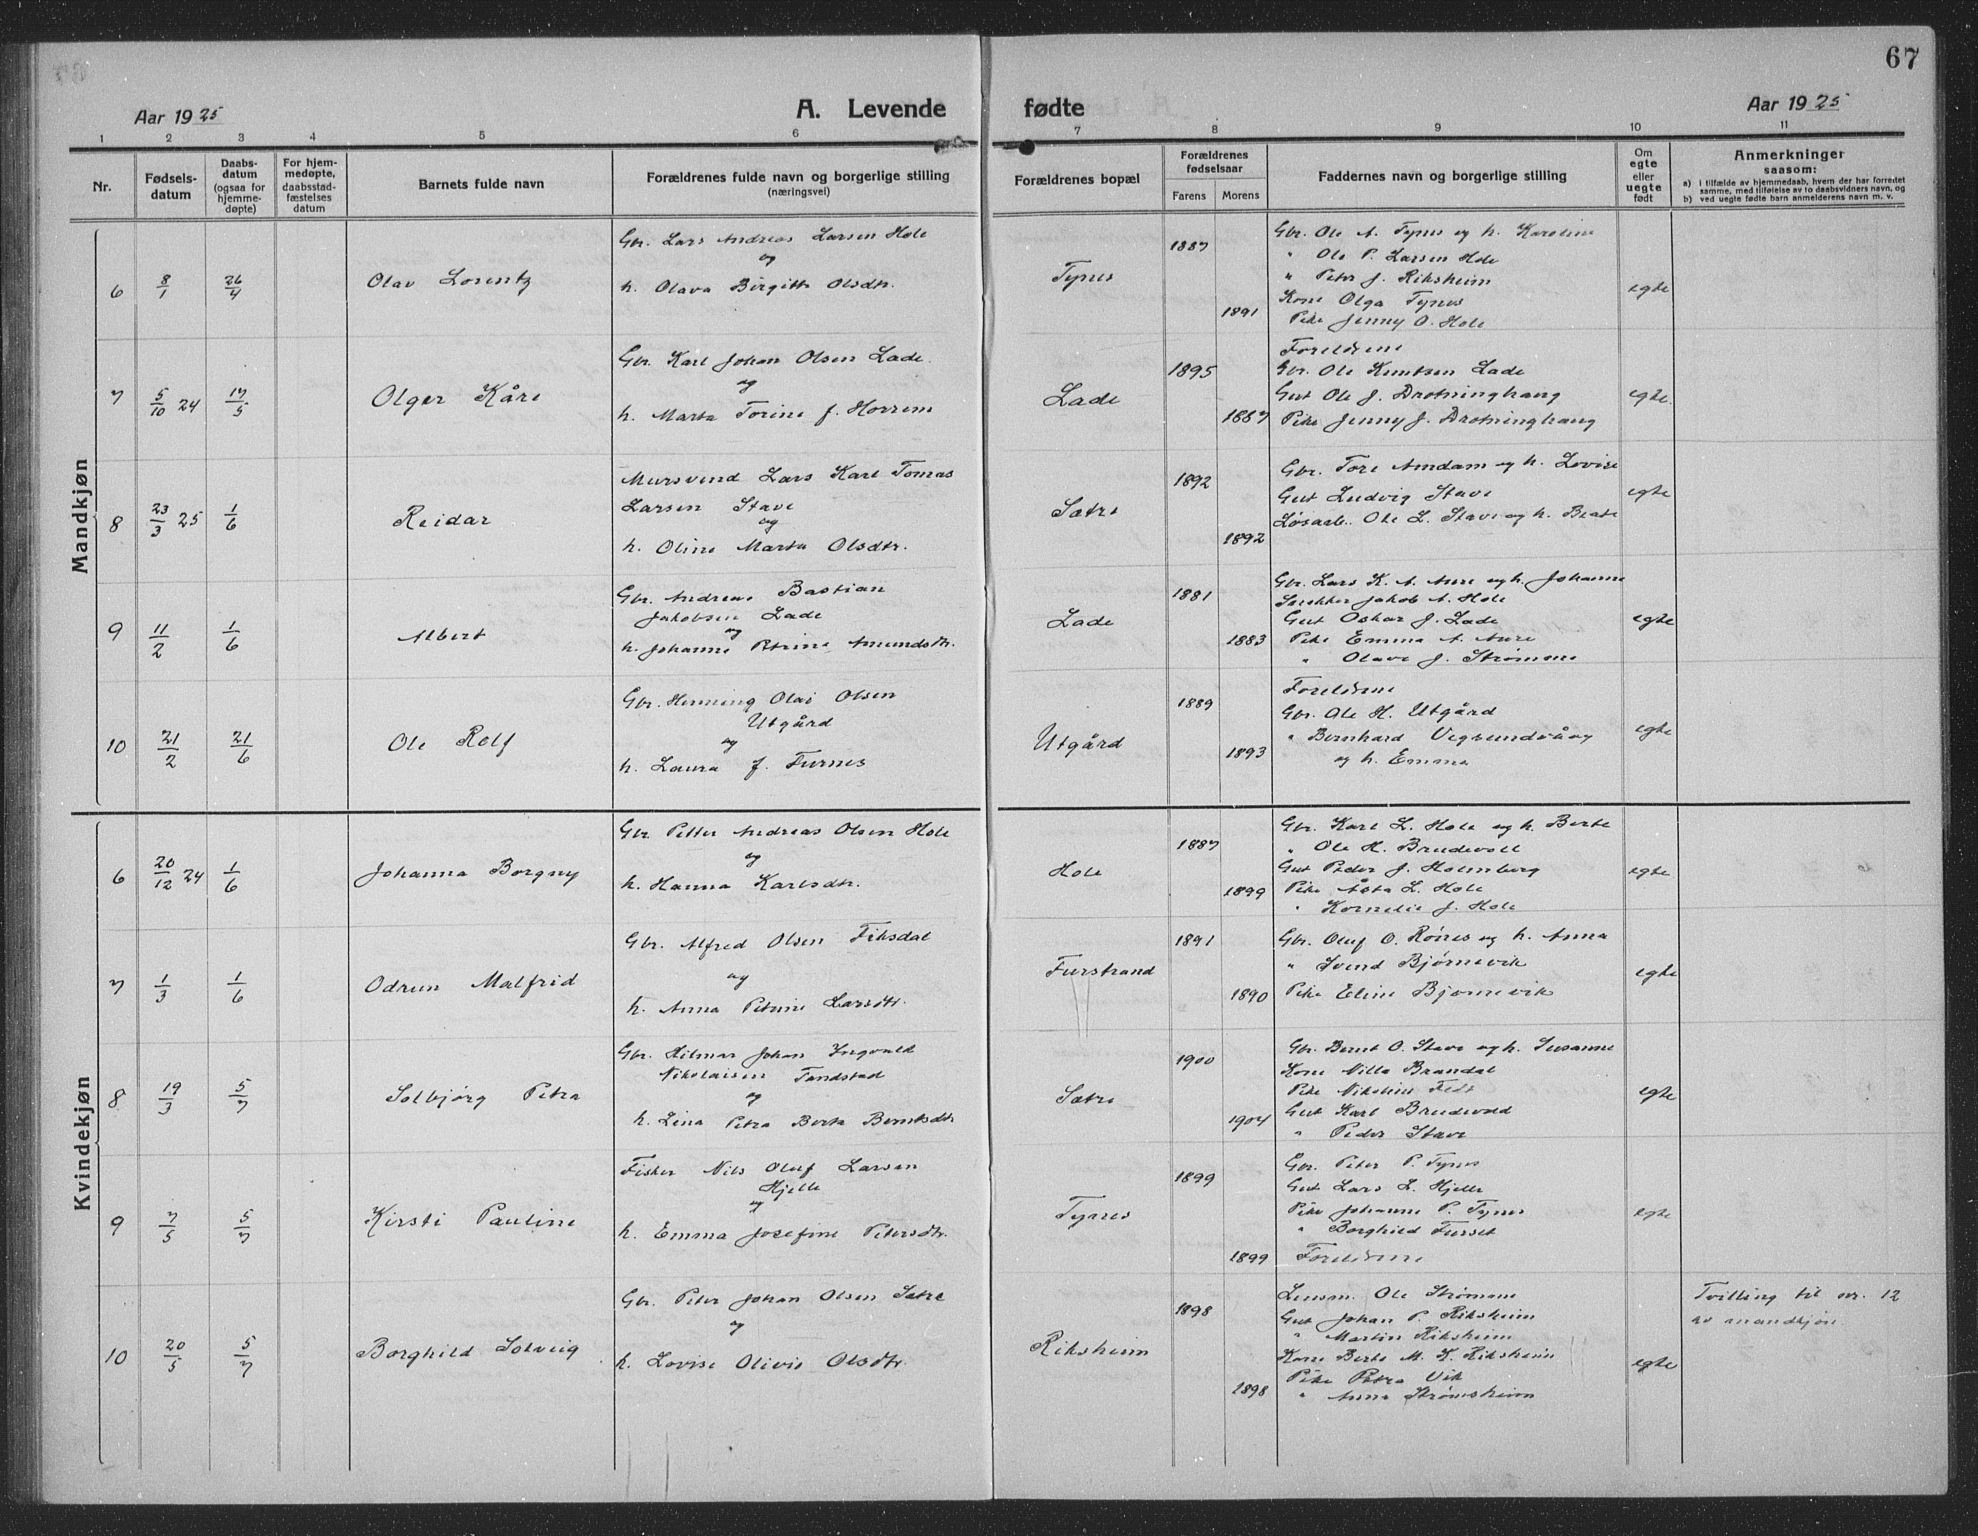 67
Aar 1925 A. Levende fødte Aar 1925
1 2 3 4 5 6 7 8 9 10 11
Nr.
Fødsels-
datum
Daabs-
datum
(ogsaa for
hjemme-
døpte)
For hjem-
medøpte,
daabsstad-
fæstelses
datum
Barnets fulde navn
Forældrenes fulde navn og borgerlige stilling
(næringsvei)
Forældrenes bopæl
Forældrenes
fødselsaar
Farens Morens
Faddernes navn og borgerlige stilling
Om
egte
eller
uegte
født
Anmerkninger
saasom:
a) i tilfælde av hjemmedaab, hvem der har forrettet
samme, med tilføielse av to daabsvidners navn, og
b) ved uegte fødte barn anmelderens navn m. v.
Mandkjøn
6 8/1 26/4 Olav Lorentz
Gbr. Lars Andreas Larsen Hole
og
h. Olava Birgitte Olsdtr.
Tynes 1887 1891
Gbr. Ole A. Tynes og h. Karoline
" Ole P. Larsen Hole
" Peter J. Riksheim
Kone Olga Tynes
Pike Jenny O. Hole
egte
7 5/10 24 17/5 Olger Kåre
Gbr. Karl Johan Olsen Lade
og
h. Marta Torine f. Horrem
Lade 1895 1887
Foreldrene
Gbr. Ole Knutsen Lade
Gut Ole J. Drotninghaug
Pike Jenny J. Drotninghaug
egte
8 23/3 25 1/6 Reidar
Mursvend Lars Karl Tomas
Larsen Stave
og
h. Oline Marta Olsdtr.
Sætre 1892 1892
Gbr. Tore Amdam og h. Lovise
Gut Ludvig Stave
Løsarb. Ole L. Stave og h. Beate
egte
9 11/2 1/6 Albert
Gbr. Andreas Bastian
Jakobsen Lade
og
h. Johanne Petrine Amundsdtr.
Lade 1881 1883
Gbr. Lars K. A. Aure og h. Johanne
Snekker Jakob A. Hole
Gut Oskar J. Lade
Pike Emma A. Aure
" Olave J. Strømme
egte
10 21/2 21/6 Ole Rolf
Gbr. Henning Olai Olsen
Utgård
og
h. Laura f. Furnes
Utgård 1889 1893
Foreldrene
Gbr. Ole H. Utgård
" Bernhard Vegsundvåg
og h. Emma
egte
Kvindekjøn
6 20/12 24 1/6 Johanna Borgny
Gbr. Petter Andreas Olsen Hole
og
h. Hanna Karlsdtr.
Hole 1887 1899
Gbr. Karl L. Hole og h. Berte
" Ole H. Brudevoll
Gut Peder J. Holmberg
Pike Åsta L. Hole
" Kornelie J. Hole
egte
7 1/3 1/6 Odrun Malfrid
Gbr. Alfred Olsen Fiksdal
og
h. Anna Petrine Larsdtr.
Furstrand 1891 1890
Gbr. Oluf O. Rønes og h. Anna
" Svend Bjørnevik
Pike Eline Bjørnevik
egte
8 19/3 5/7 Solbjørg Petra
Gbr. Hilmar Johan Ingvald
Nikolaisen Tandstad
og
h. Lina Petra Berta Berntsdtr
Sætre 1900 1904
Gbr. Bernt O. Stave og h. Susanne
Kone Villa Brandal
Pike Nikoline Fedt
Gut Karl Brudevold
" Peder Stave
egte
9 7/5 5/7 Kirsti Pauline
Fisker Nils Oluf Larsen
Hjelle
og
h. Emma Josefine Petersdtr.
Tynes 1899 1899
Gbr. Peter P. Tynes
Gut Lars L. Hjelle
Pike Johanne P. Tynes
" Borghild Furset
Foreldrene
egte
10 20/5 5/7 Borghild Solveig
Gbr. Peter Johan Olsen Sætre
og
h. Lovise Olivie Olsdtr.
Riksheim 1898 1898
Lensm. Ole Strømme
Gut Johan P. Riksheim
" Martin Riksheim
Kone Berte M. K. Riksheim
Pike Petra Vik
" Anna Strømsheim
egte
Tvilling til nr. 12
av mandkjøn.